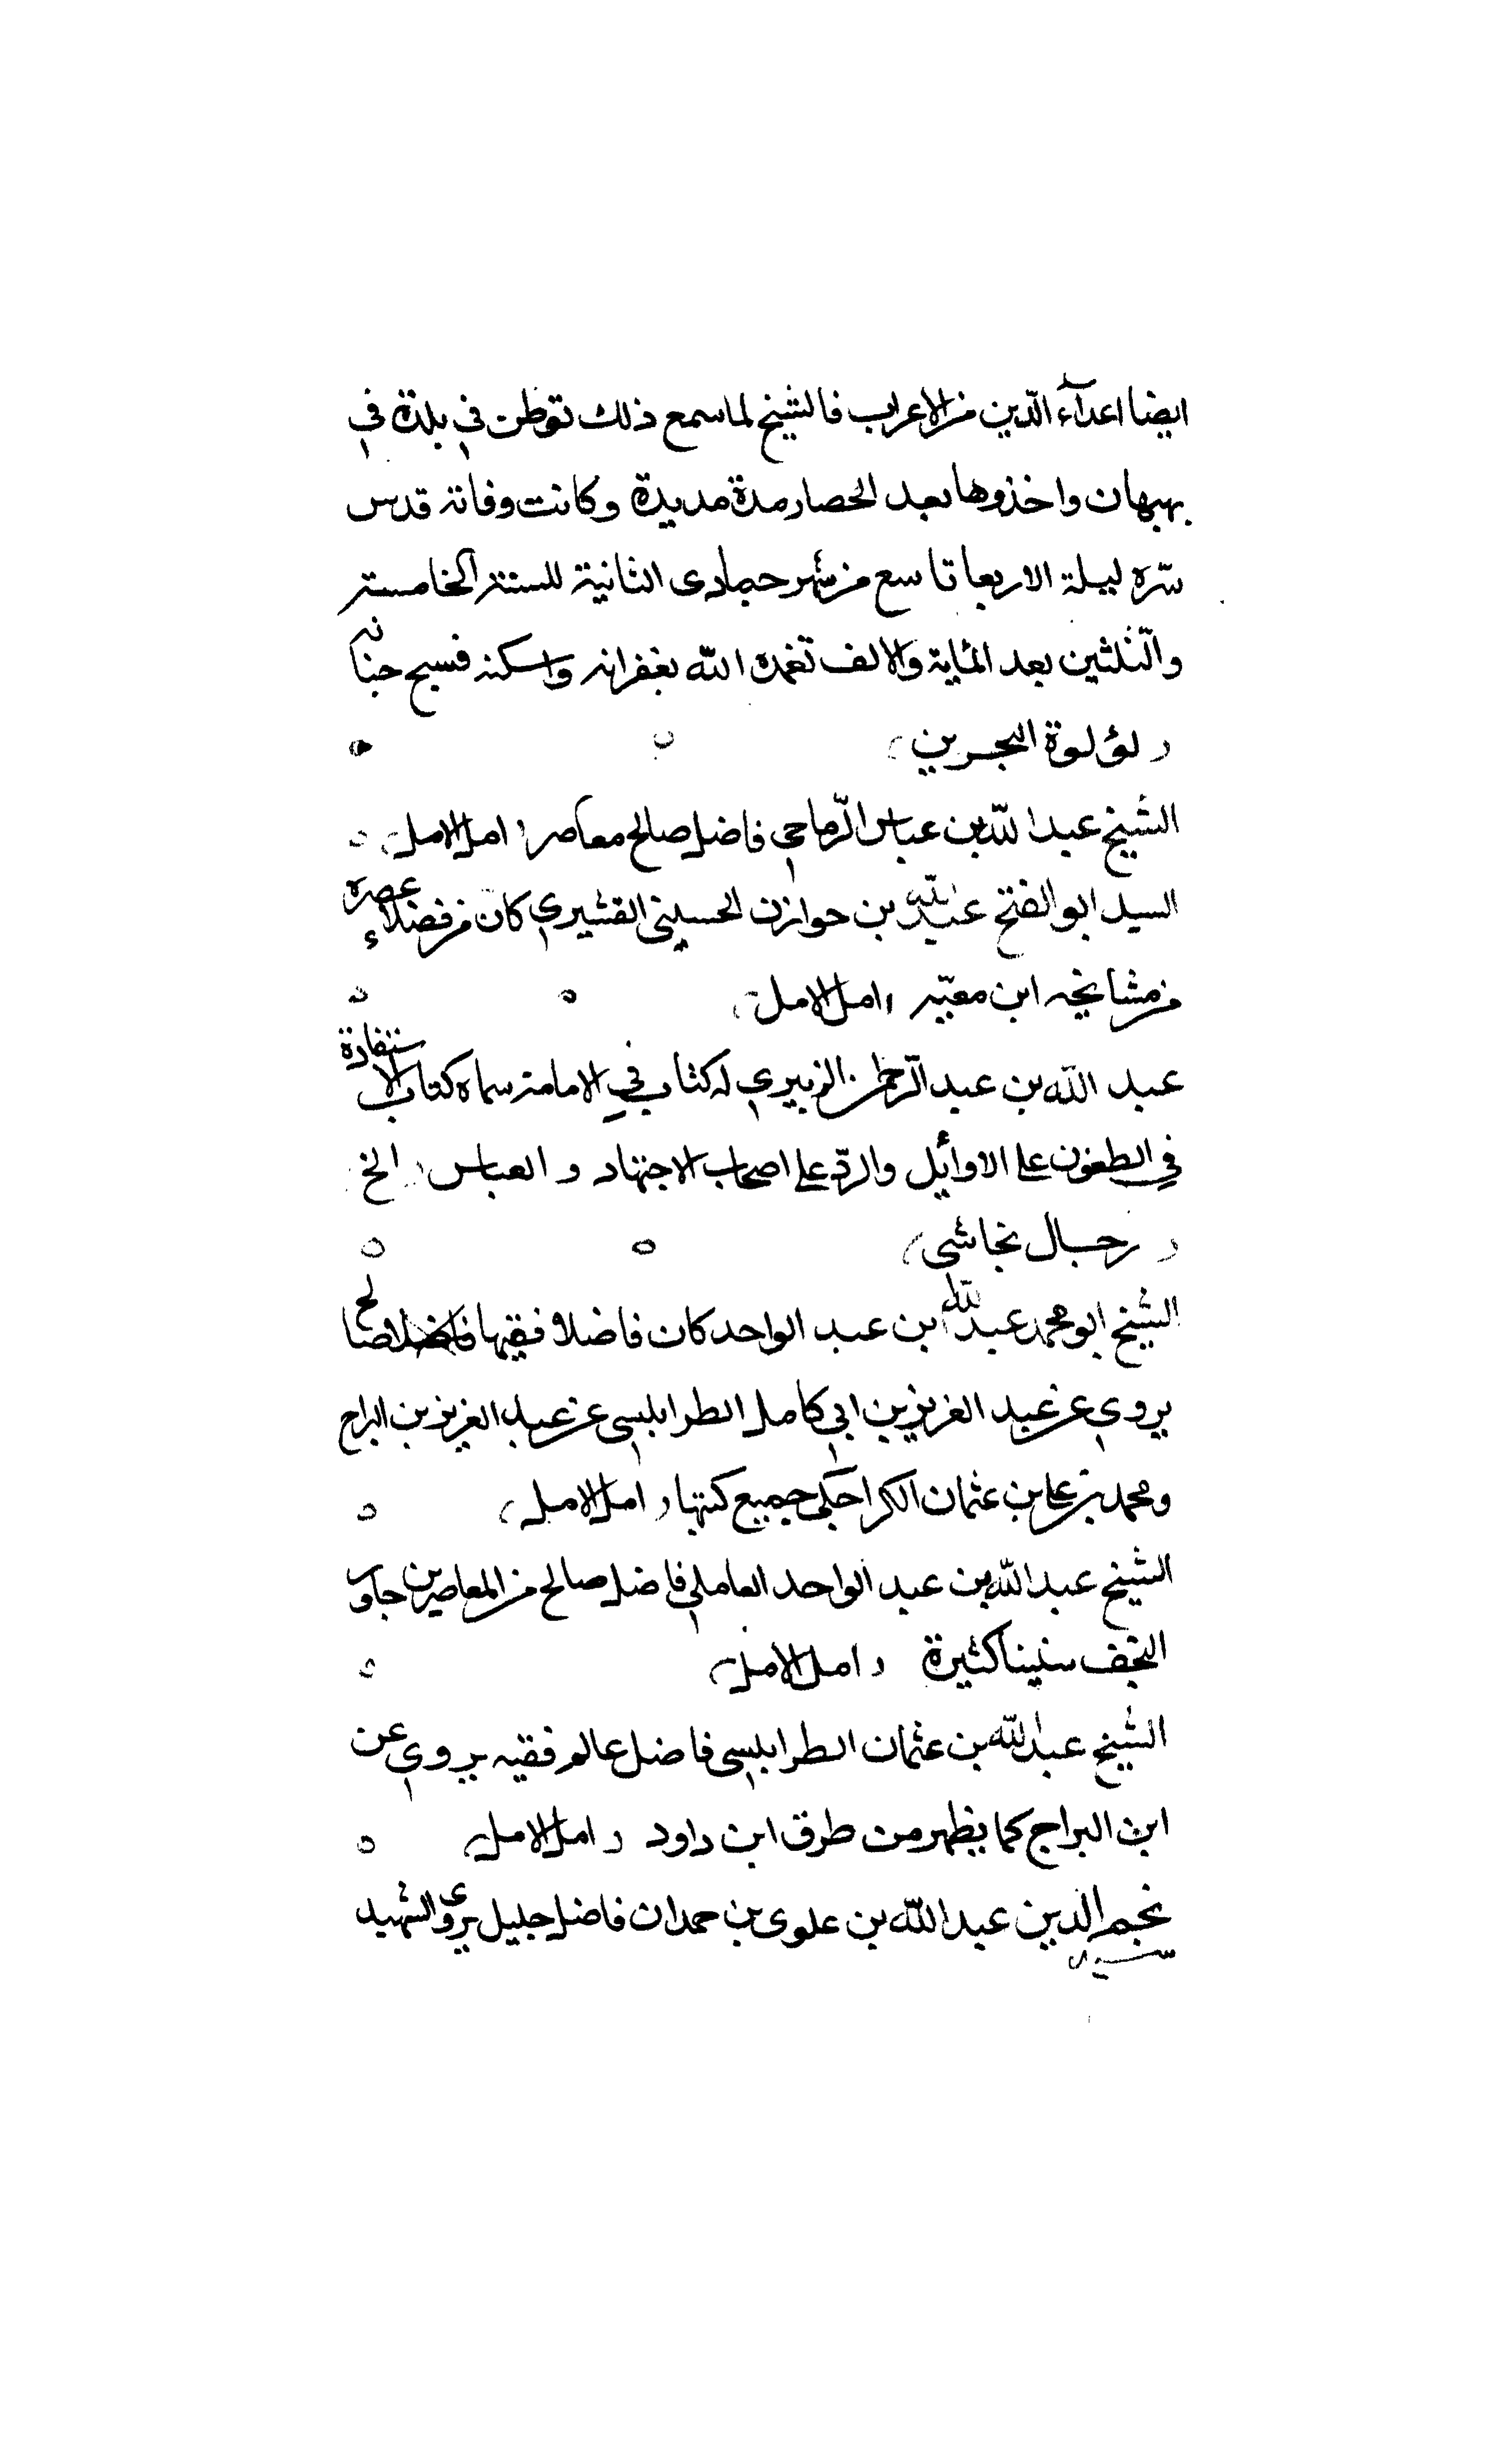 ايضا اعدآء الدّين من الاعراب فالشيخ لما سمع ذلك توطن في بلدة في
بهبهان واخذوها بعد الحصار مدة مديدة وكانت وفاته قدس
سّره ليلة الاربعا تاسع من شهر جمادى الثانية للسنته الخامسته
والثّلثين بعد المائة والالف تغمده الله بغفرانه واسكنه فسيح جنانه
( لؤلوة البحرين )
الشيخ عبد الله بن عباس الرّماحي فاضل صالح معاصر ( امل الامل )
السيد ابو الفتح عبد الله بن حوازن الحسيني القشيري كان من فضلاء عصره
من مشايخه ابن معيّه ( امل الامل )
عبد الله بن عبد الرّحمن الزبيري له كتاب في الامامة سماه كتاب الاستفادة
في الطعون على الاوائل والردّ على اصحاب الاجتهاد و العباس الخ
( رجال نجاشي )
الشيخ ابو محمد عبد الله ابن عبد الواحد كان فاضلا فقيها صالح
يروي عن عبد العزيز بن ابي كامل الطرابلسي عن عبد العزيز بن البراج
ومحمد بن علي بن عثمان الكراجكي جميع كتبها ( امل الامل )
الشيخ عبد الله بن عبد الواحد العاملي فاضل صالح من المعاصرين جاور
النجف سنينا كثيرة ( امل الامل )
الشيخ عبد الله بن عثمان الطرابلسي فاضل عالم فقيه يروي عن
ابن البراج كما يظهر من طرق ابن داود ( امل الامل )
نجم الدين عبد الله بن علوي بن حمدان فاضل جليل يروى الشهيد